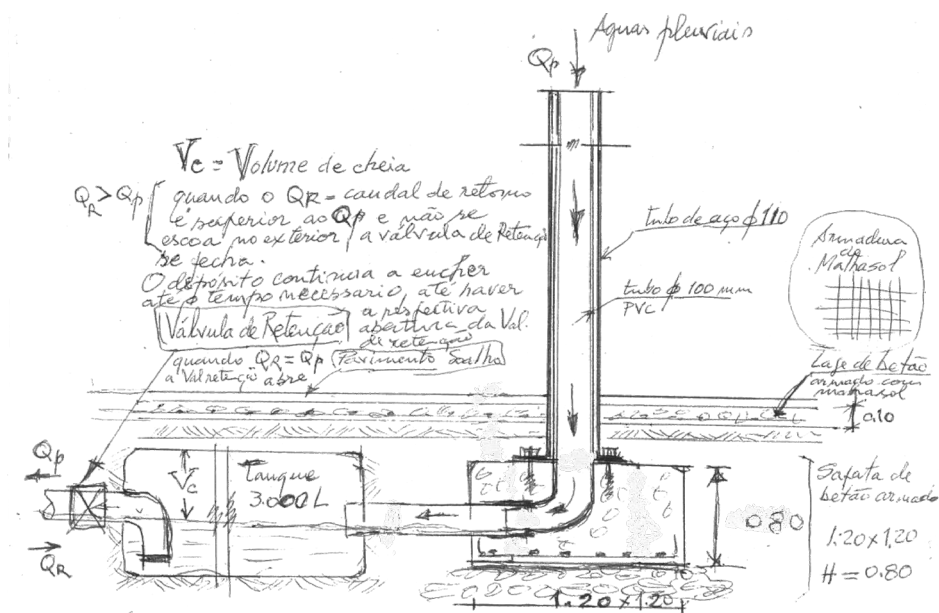 Aguas pluviais
Qp
Vc = Volume de cheia
QR > Qp
quando o QR = caudal de retorno
é superior ao Qp e não se
escoa no exterior a válvula de Retenção
se fecha.
O depósito continua a encher
até o tempo necessario, até haver
a respetiva
abertura da Val.
di retenção
Válvula de Retenção
quando QR = Qp
a Val retenção abre
Pavimento Soalho
tubo de aço ϕ 110
tubo ϕ 100 mm
PVC
Armadura
de
Malhasol
Laje de betão
armado com
malhasol
0.10
Qp
QR
Vc
Tanque
3.000L
0.80
1.20 x 1.20
Sapata de
betão armado
1.20 x 1.20
H = 0.80